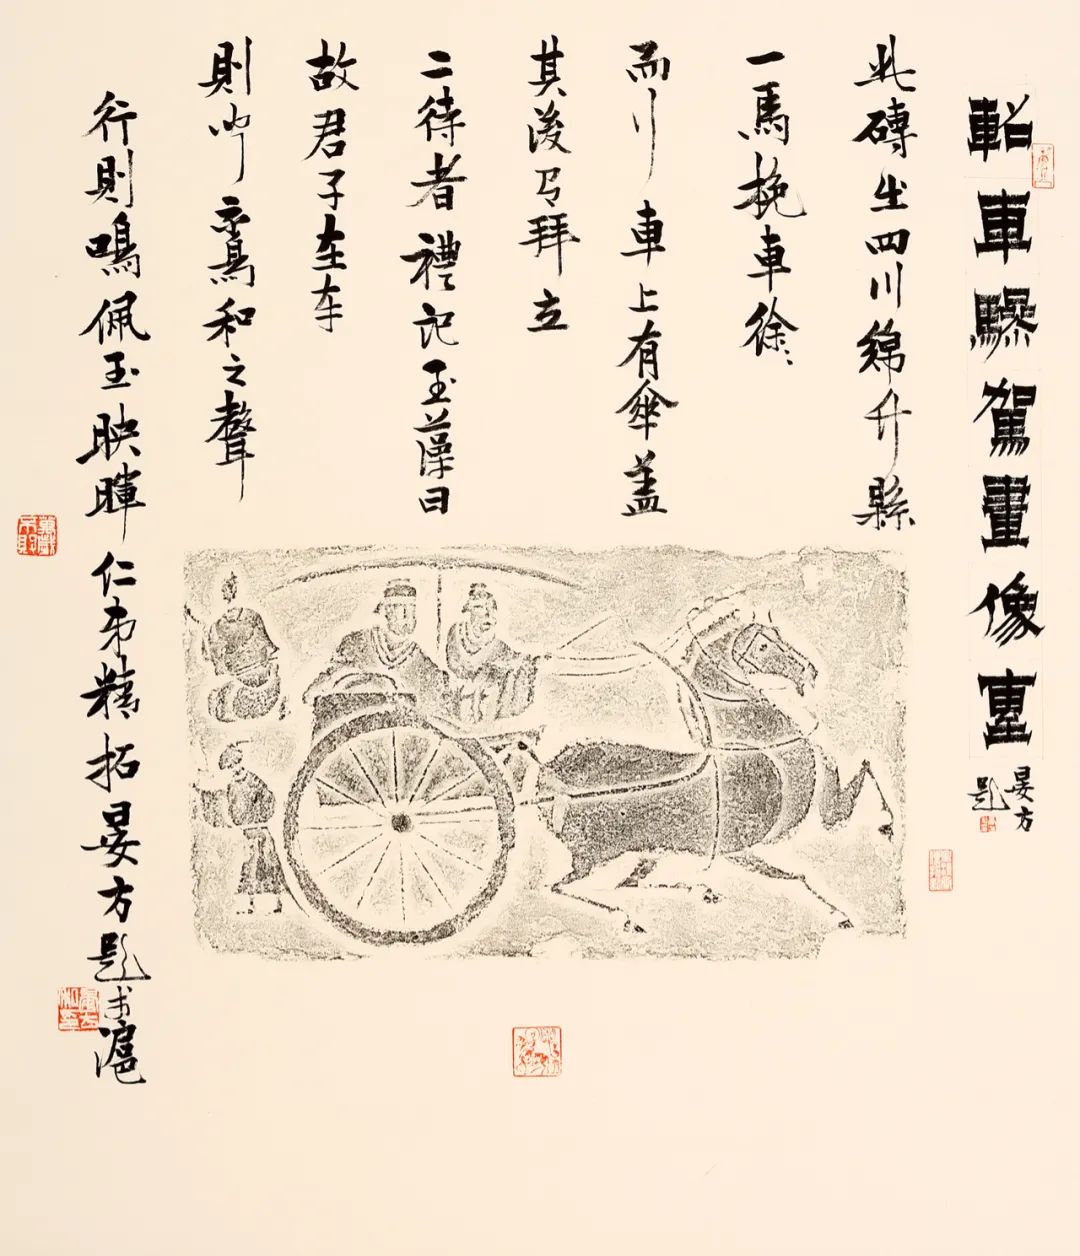 軺車驂駕畫像
晏方
題
此磚出四川綿竹縣
一馬挽車徐〻
而行車上有傘蓋
其後弓拜立
二待者禮記玉藻曰
故君子在车
則听鸞和之聲
行則鳴佩玉映暉仁弟精拓晏方題於滬